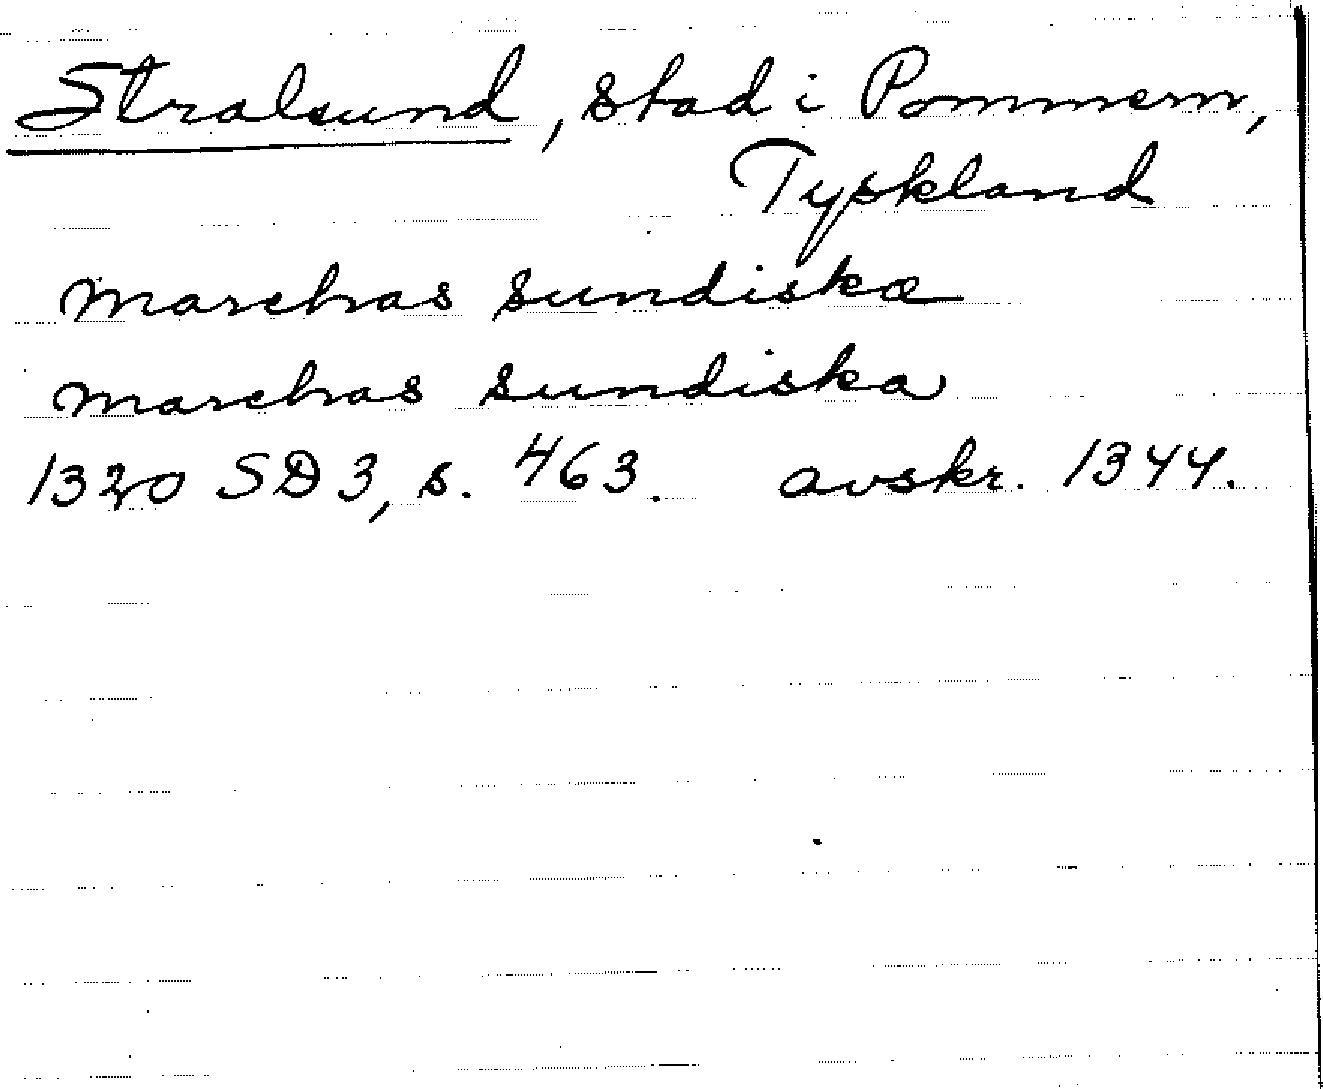 Stralsund, stad i Pommern,
Tyskland
marchas sundiskæ
marchas sundiska
1320 SD 3, s. 463. avskr. 1344.